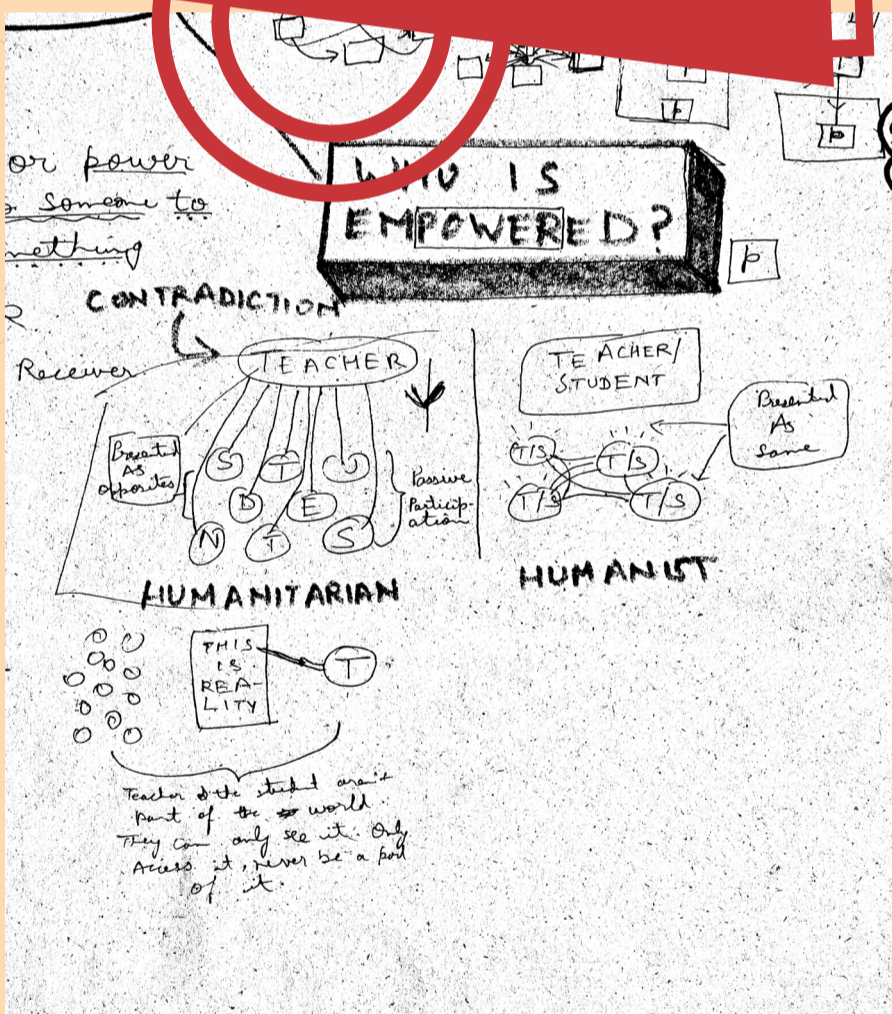 or power
someone to
mething
WHO IS
EMPOWERED?
p
p
p
CONTRADICTION
R
Receiver
TEACHER
Presented
As
opposites
S
T
U
D
E
N
T
S
Passive
Particip-
ation
HUMANITARIAN
TEACHER/
STUDENT
T/S
T/S
T/S
T/S
Presented
As
Same
HUMANIST
THIS
IS
REA-
LITY
T
Teacher & the student aren't
part of the world.
They can only see it. Only
Access it, never be a part
of it.